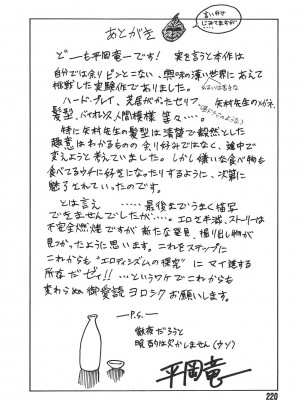 あとがき
言い分けじみてますが…
どーも平岡竜一です! 実を言うと本作は
自分では余りピンとこない、興味の薄い世界にあえて
挑戦した実験作でありました。
ハード・プレイ、文居がかったセリフ、矢村先生のメガネ、
髪型、バイオレンス、人間模様 等々…。
特に矢村先生の髪型は清楚で毅然とした
趣意はわかるものの余り好みではなく、途中で
変えようと考えていました。しかし嫌いな食べ物も
食べてるウチに好きになったりするように、次第に
魅了されていったのです。
とは言え……最後までうまく描写
できませんでしたが…。エロさ半減、ストーリーは
不完全燃焼ですが新たな発見、掘り出し物が
見つかったように思います。これをステップに
これからも"エロティシズムの探究"にマイ進する
所存だゼイ!!…というワケでこれからも
変わらぬ御愛読ヨロシクお願いします。
―P.S.―
徹夜だろうと
晩酌は欠かしません(ウソ)
平岡竜一
220